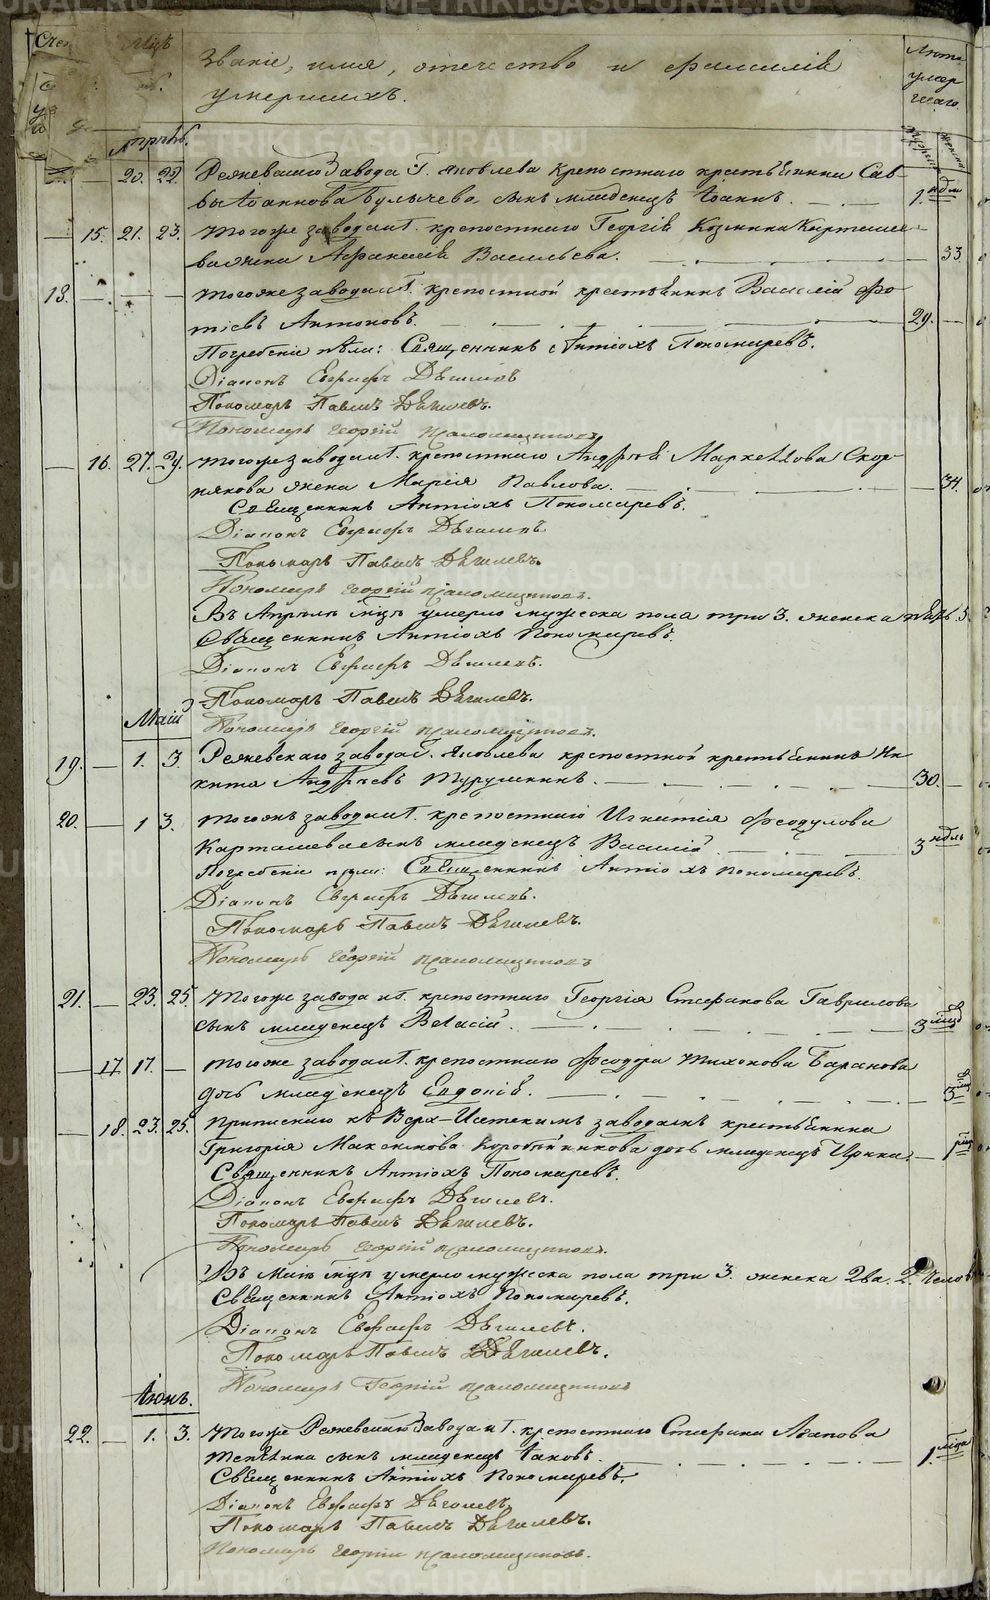 Званіе, имя, отечество и фамилія
умершихъ.
Лѣта
умер
шаго.
Апрѣль.
20. 22. Режевскаго Завода Г. Яковлева Крепостнаго крестьянина Сав-
вы Іоаннова Булычева сынъ младенецъ Іоаннъ. 1. ндли
15. 21. 23. Тогоже завода и Г. крепостнаго Георгія Козмина Карташе-
ва жена Афанасія Васильева. 33.
18. Тогоже завода и Г. крепостной крестьянинъ Василій Фо-
тіевъ Антоновъ. 29.
Погребеніе пѣли: Священникъ Антіохъ Пономаревъ.
Діаконъ Евграфъ Дѣгилевъ
Пономарь Павелъ Дѣгилевъ.
Пономарь Георгій
16. 27. 29. Тогоже завода и Г. крепостнаго Андрея Маркелова Скор-
някова жена Марія Павлова. 34.
Священникъ Антіохъ Пономаревъ.
Діаконъ Евграфъ Дѣгилевъ
Пономарь Павелъ Дѣгилевъ.
Пономарь Георгій
Въ Апрѣлѣ мцѣ умерло мужеска пола три 3. женска
Священникъ Антіохъ Пономаревъ.
Діаконъ Евграфъ Дѣгилевъ.
Пономарь Павелъ Дѣгилевъ.
Маій
Пономарь Георгій
19. 1. 3. Режевскаго завода Г. Яковлева крепостной крестьянинъ Ни-
кита Андреевъ Турушкинъ. 30.
20. 1 3. Тогоже завода и Г. крепостнаго Игнатія Феодулова
Карташева сынъ младенецъ Василій 3 ндль
Погребеніе пѣли: Священникъ Антіохъ Пономаревъ.
Діаконъ Евграфъ Дѣгилевъ.
Пономарь Павелъ Дѣгилевъ.
Пономарь Георгій
21. 23. 25. Тогоже завода и Г. крепостнаго Георгія Стефанова Гаврилова
сынъ младенецъ 3
17. 17. Тогоже завода и Г. крепостнаго Феодора Тихонова Баранова
дочь младенецъ Евдокія. 3
18. 23. 25. Приписнаго къ Верх-Исетскимъ заводамъ крестьянина
Григорія Максимова Коробейникова дочь младенецъ Ирина. 1
Священникъ Антіохъ Пономаревъ.
Діаконъ Евграфъ Дѣгилевъ.
Пономарь Павелъ Дѣгилевъ.
Пономарь Георгій
Въ Маіѣ мцѣ умерло мужеска пола три 3. женска два. 2. Челов
Священникъ Антіохъ Пономаревъ.
Діаконъ Евграфъ Дѣгилевъ.
Пономарь Павелъ Дѣгилевъ.
Пономарь Георгій
Іюнь.
22. 1. 3. Тогоже Режевскаго Завода и Г. крепостнаго Стефана
сынъ младенецъ Іаковъ. 1.
Священникъ Антіохъ Пономаревъ.
Діаконъ Евграфъ Дѣгилевъ
Пономарь Павелъ Дѣгилевъ.
Пономарь Георгій
METRIKI.GASO-URAL.RU